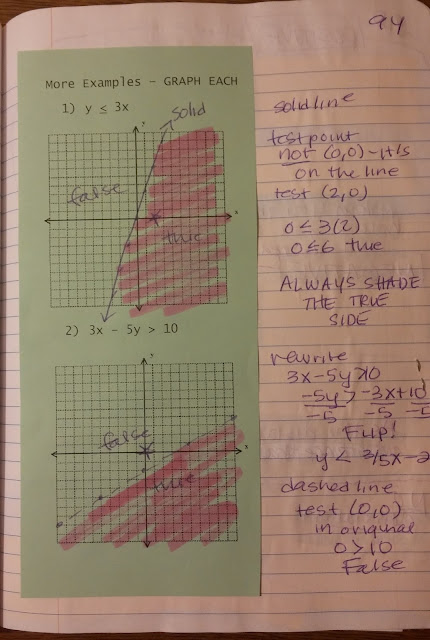 94
More Examples - GRAPH EACH
1) y ≤ 3x
solid
false
true
x
y
2) 3x - 5y > 10
y
false
x
true
solid line
test point
not (0,0) - it's
on the line
test (2,0)
0 ≤ 3(2)
0 ≤ 6 true
ALWAYS SHADE
THE TRUE
SIDE
rewrite
3x-5y>10
-5y > -3x+10
-5 -5 -5
Flip!
y < 3/5x-2
dashed line
test (0,0)
in original
0>10
False